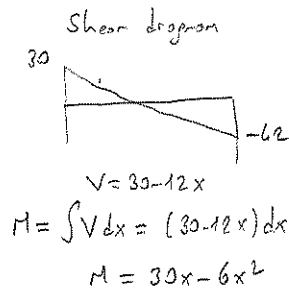 Shear diagram
30
-62
V=30-12x
M = ∫Vdx = (30-12x)dx
M = 30x-6x²